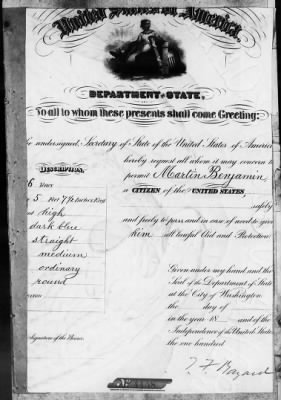 United States of America,
DEPARTMENT OF STATE,
To all to whom these presents shall come Greeting:
undersigned, Secretary of State of the United States of America
hereby request all whom it may concern to
permit Martin Benjamin
a CITIZEN of the UNITED STATES,
safely
and freely to pass and in case of need to give
him all lawful Aid and Protection
Given under my hand and the
Seal of the Department of State
at the City of Washington
the day of
in the year 18 and of the
Independence of the United States
the one hundred
T F Bayard
DESCRIPTION,
6 Years
5 Feet 7½ Inches Eng
high
dark blue
straight
medium
ordinary
round
Signature of the Bearer.